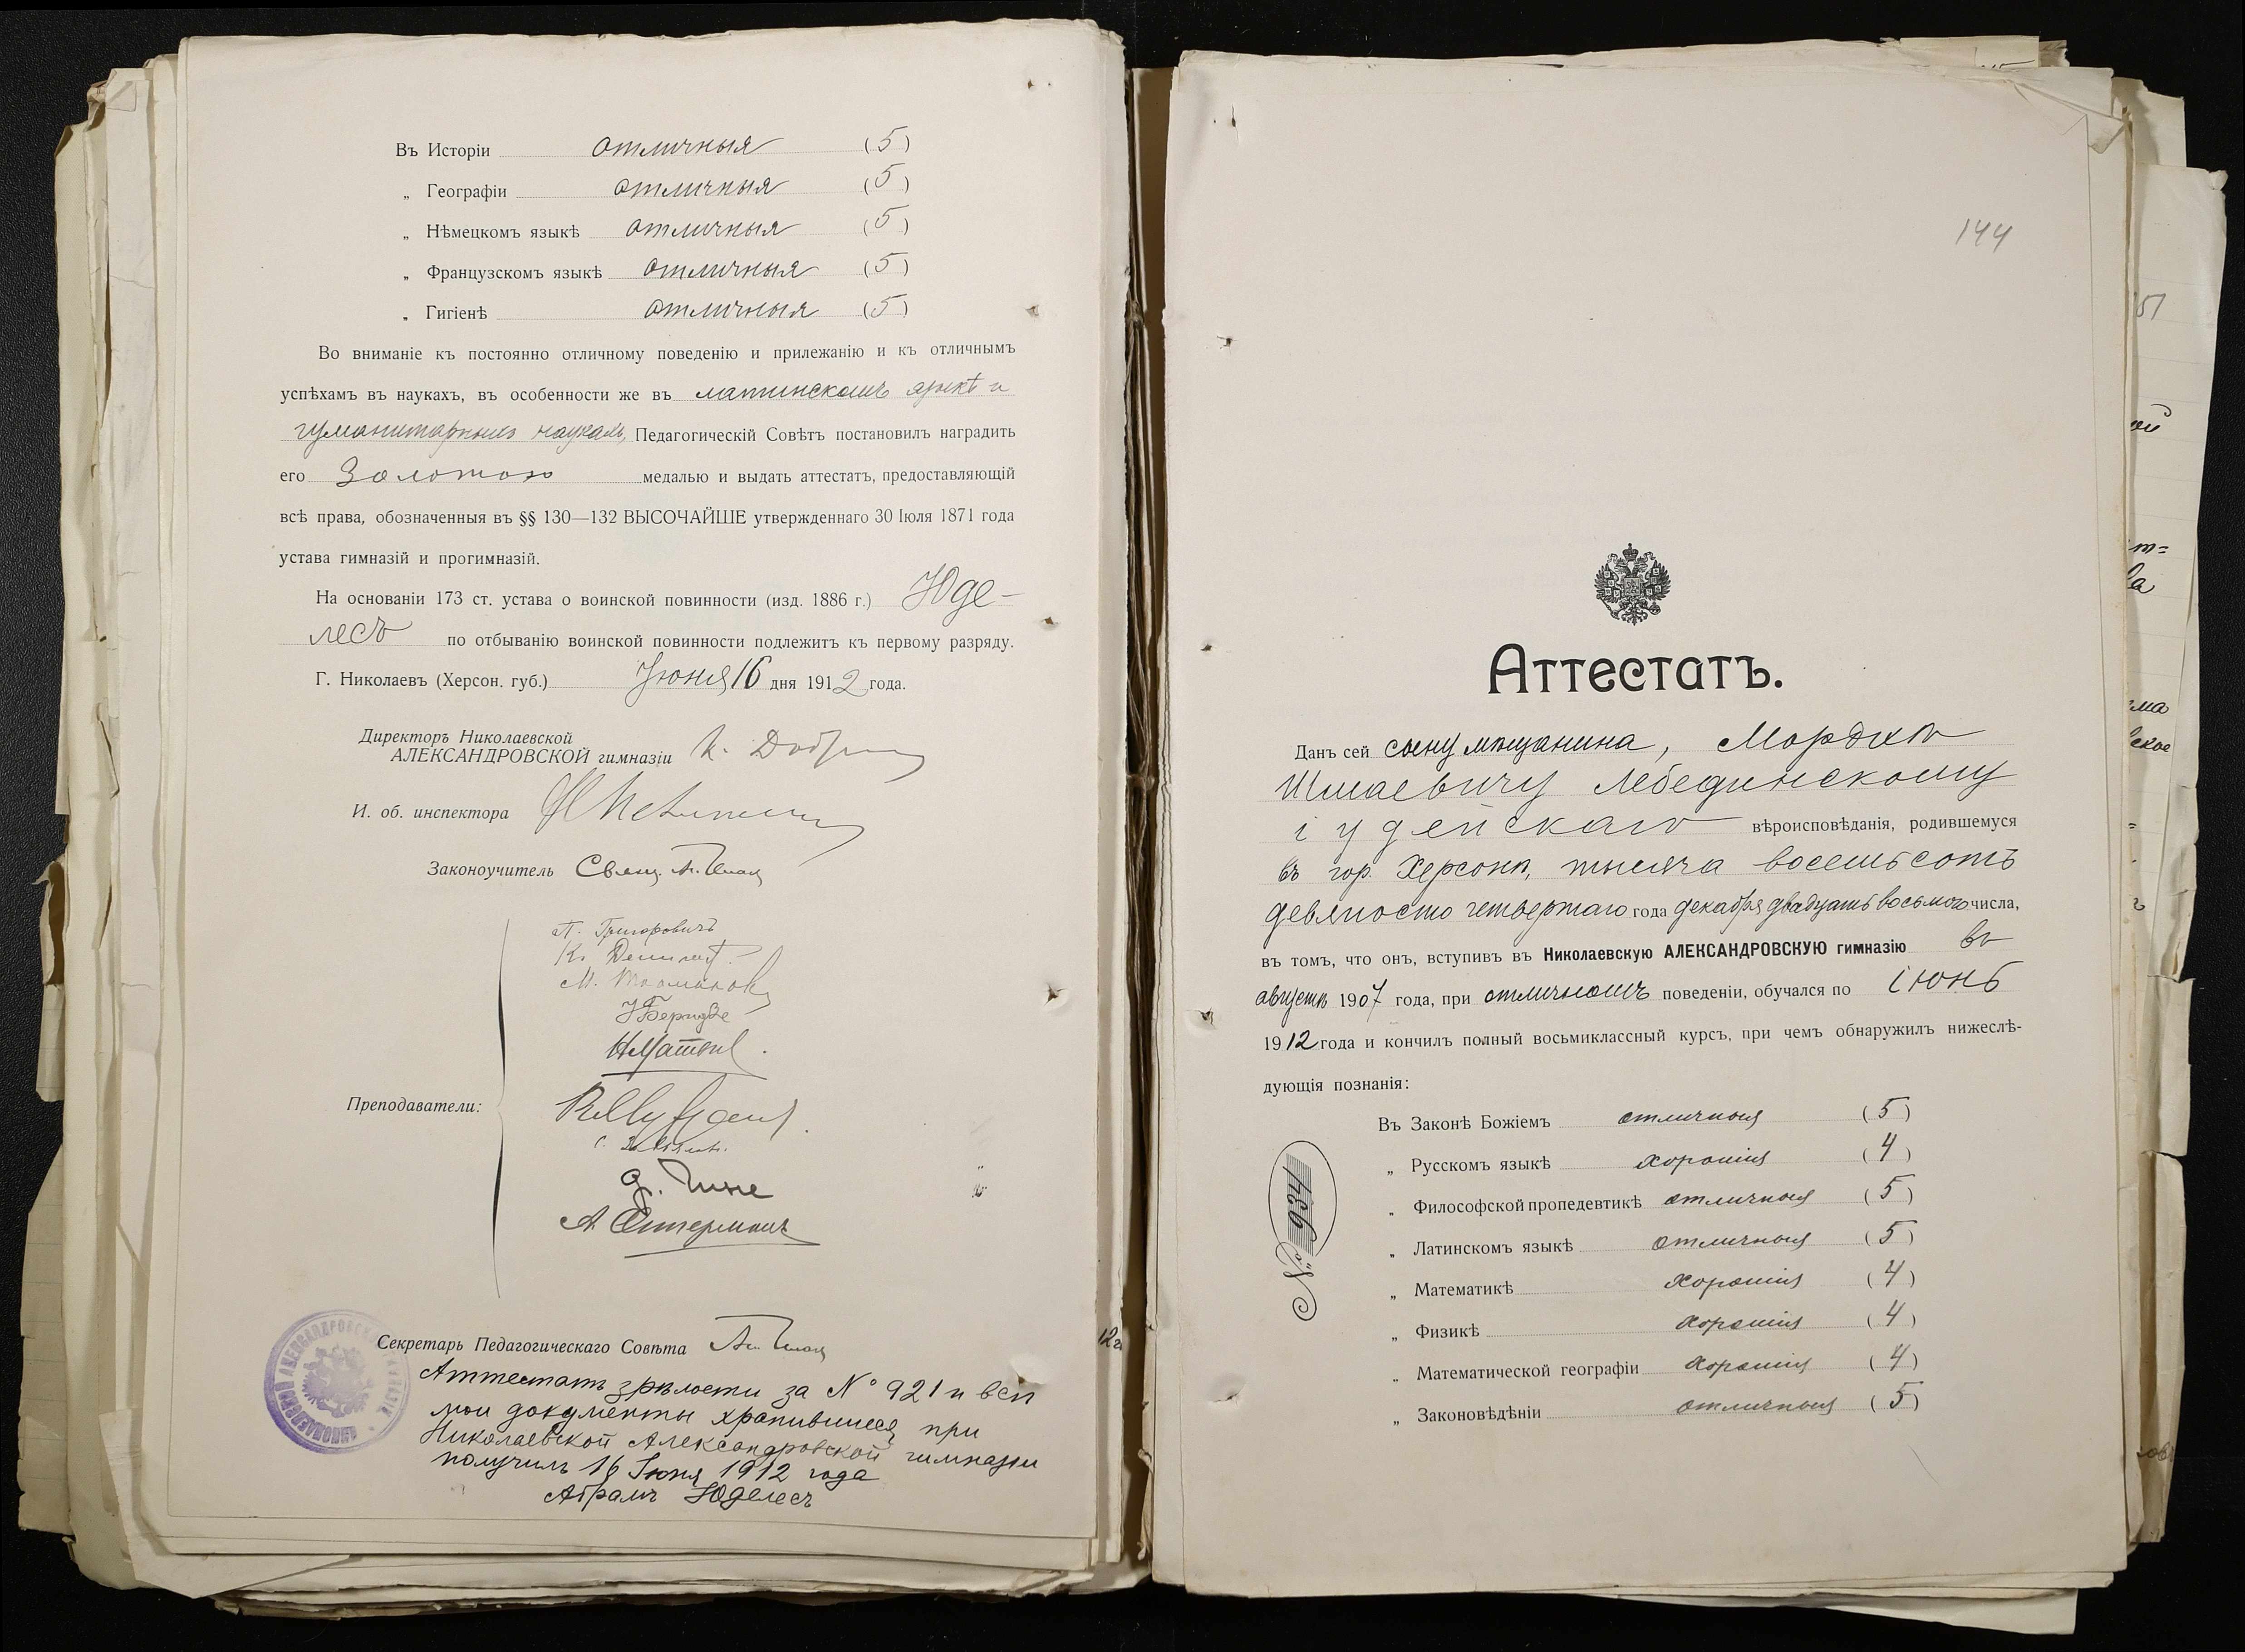 Въ Исторіи отличныя (5)
„ Географіи отличныя (5)
„ Нѣмецкомъ языкѣ отличныя (5)
„ Французскомъ языкѣ отличныя (5)
„ Гигіенѣ отличныя (5)
Во вниманіе къ постоянно отличному поведенію и прилежанію и къ отличнымъ
успѣхамъ въ наукахъ, въ особенности же въ латинскомъ языкѣ и
гуманитарнымъ наукамъ, Педагогическій Совѣтъ постановилъ наградить
его Золотою медалью и выдать аттестатъ, предоставляющій
всѣ права, обозначенныя въ §§ 130—132 ВЫСОЧАЙШЕ утвержденнаго 30 Іюля 1871 года
устава гимназій и прогимназій.
На основаніи 173 ст. устава о воинской повинности (изд. 1886 г.) Юде-
лесъ по отбыванію воинской повинности подлежитъ къ первому разряду.
Г. Николаевъ (Херсон. губ.) Іюня 16 дня 1912 года.
Директоръ Николаевской
АЛЕКСАНДРОВСКОЙ гимназіи
И. об. инспектора
Законоучитель Свящ.
П. Григоровичъ
К.
М.
Преподаватели:
А.
Секретарь Педагогическаго Совѣта
Аттестатъ зрѣлости за № 921 и всѣ
мои документы хранившіеся при
Николаевской Александровской гимназіи
получилъ 16 Іюня 1912 года
Абрамъ Юделесъ
144
Аттестатъ.
Данъ сей сыну мѣщанина, Мордкѣ
Шмаевичу Лебединскому
іудейскаго вѣроисповѣданія, родившемуся
въ гор. Херсонѣ, тысяча восемьсотъ
девяносто четвертаго года декабря двадцать восьмого числа,
въ томъ, что онъ, вступивъ въ Николаевскую АЛЕКСАНДРОВСКУЮ гимназію въ
августѣ 1907 года, при отличномъ поведеніи, обучался по іюнь
1912 года и кончилъ полный восьмиклассный курсъ, при чемъ обнаружилъ нижеслѣ-
дующія познанія:
Въ Законѣ Божіемъ отличныя (5)
„ Русскомъ языкѣ хорошія (4)
„ Философской пропедевтикѣ отличныя (5)
„ Латинскомъ языкѣ отличныя (5)
„ Математикѣ хорошія (4)
„ Физикѣ хорошія (4)
„ Математической географіи хорошія (4)
„ Законовѣдѣніи отличныя (5)
№ 934